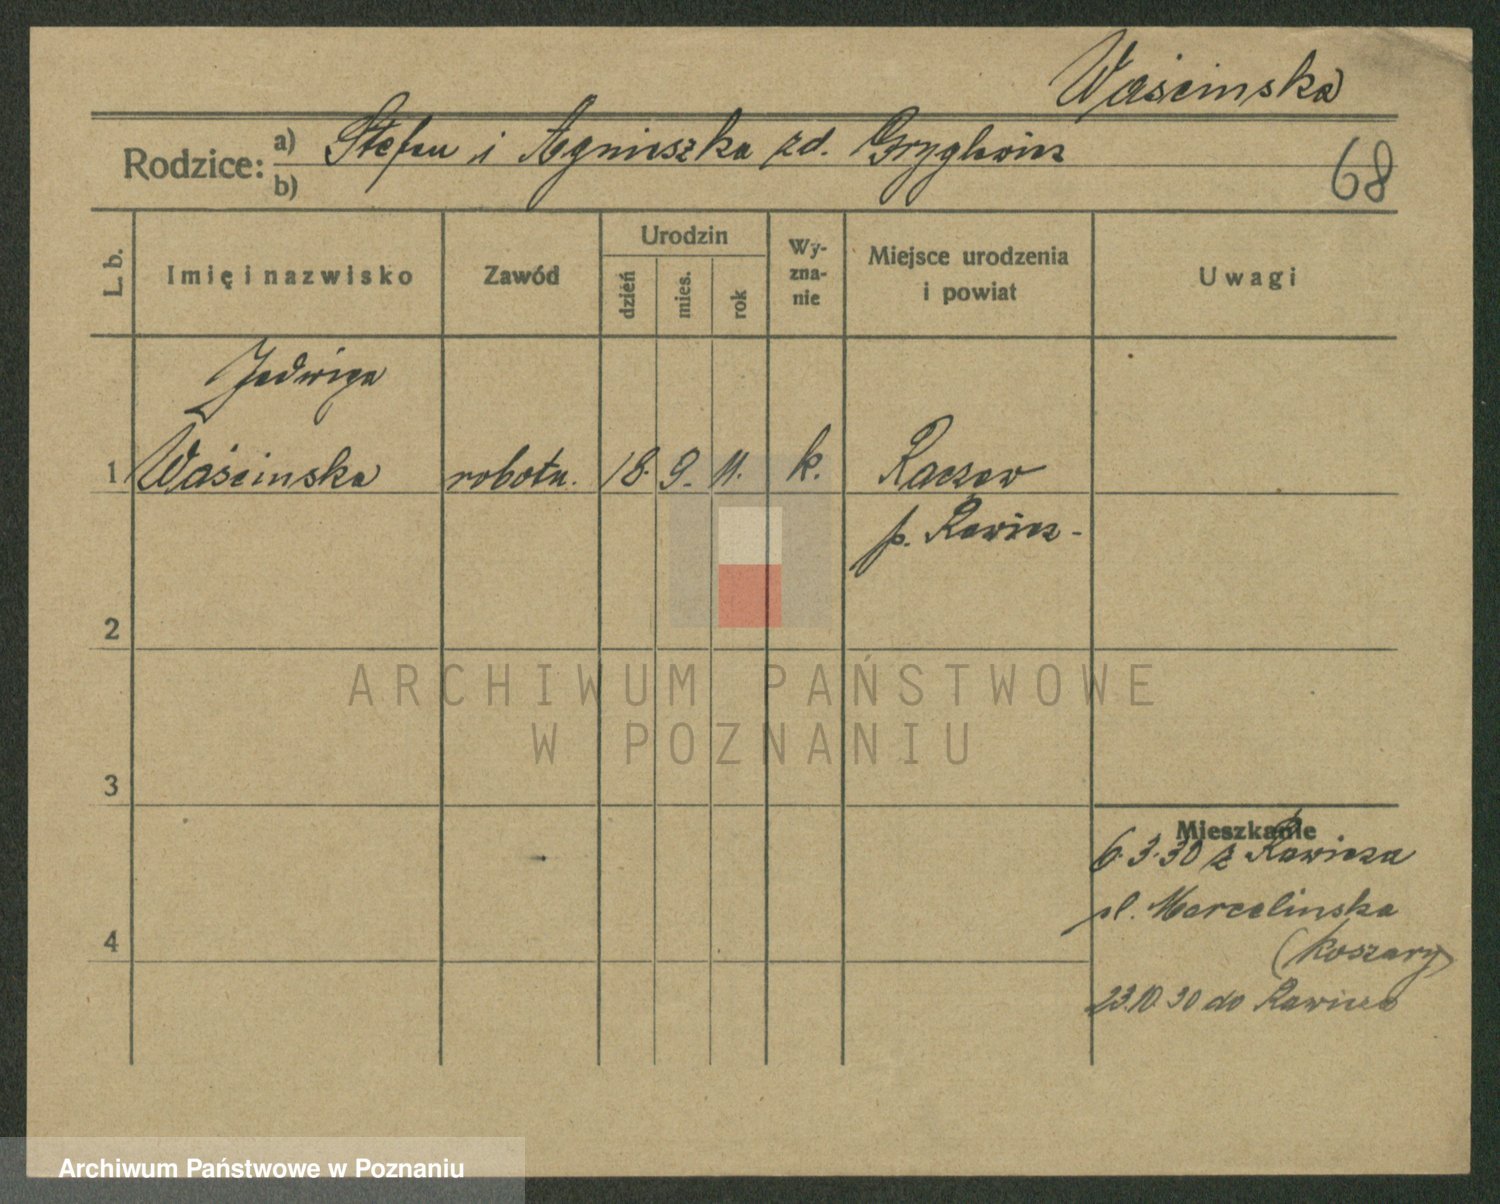 Waścinska
Rodzice: a) Stefan i Agnieszka zd. Gryglewicz
b)
68
L. b.
Imię i nazwisko
Zawód
Urodzin
dzień
mies.
rok
Wy-
zna-
nie
Miejsce urodzenia
i powiat
Uwagi
Jadwiga
1 Waścinska robotn. 18. 9. 11. k. Raczew
p. Rawicz-
2
ARCHIWUM PAŃSTWOWE
W POZNANIU
3
Mieszkanie
6.3.30 z Rawicza
ul. Marcelinska
4
(Koszary)
23.10.30 do Rawicza
Archiwum Państwowe w Poznaniu